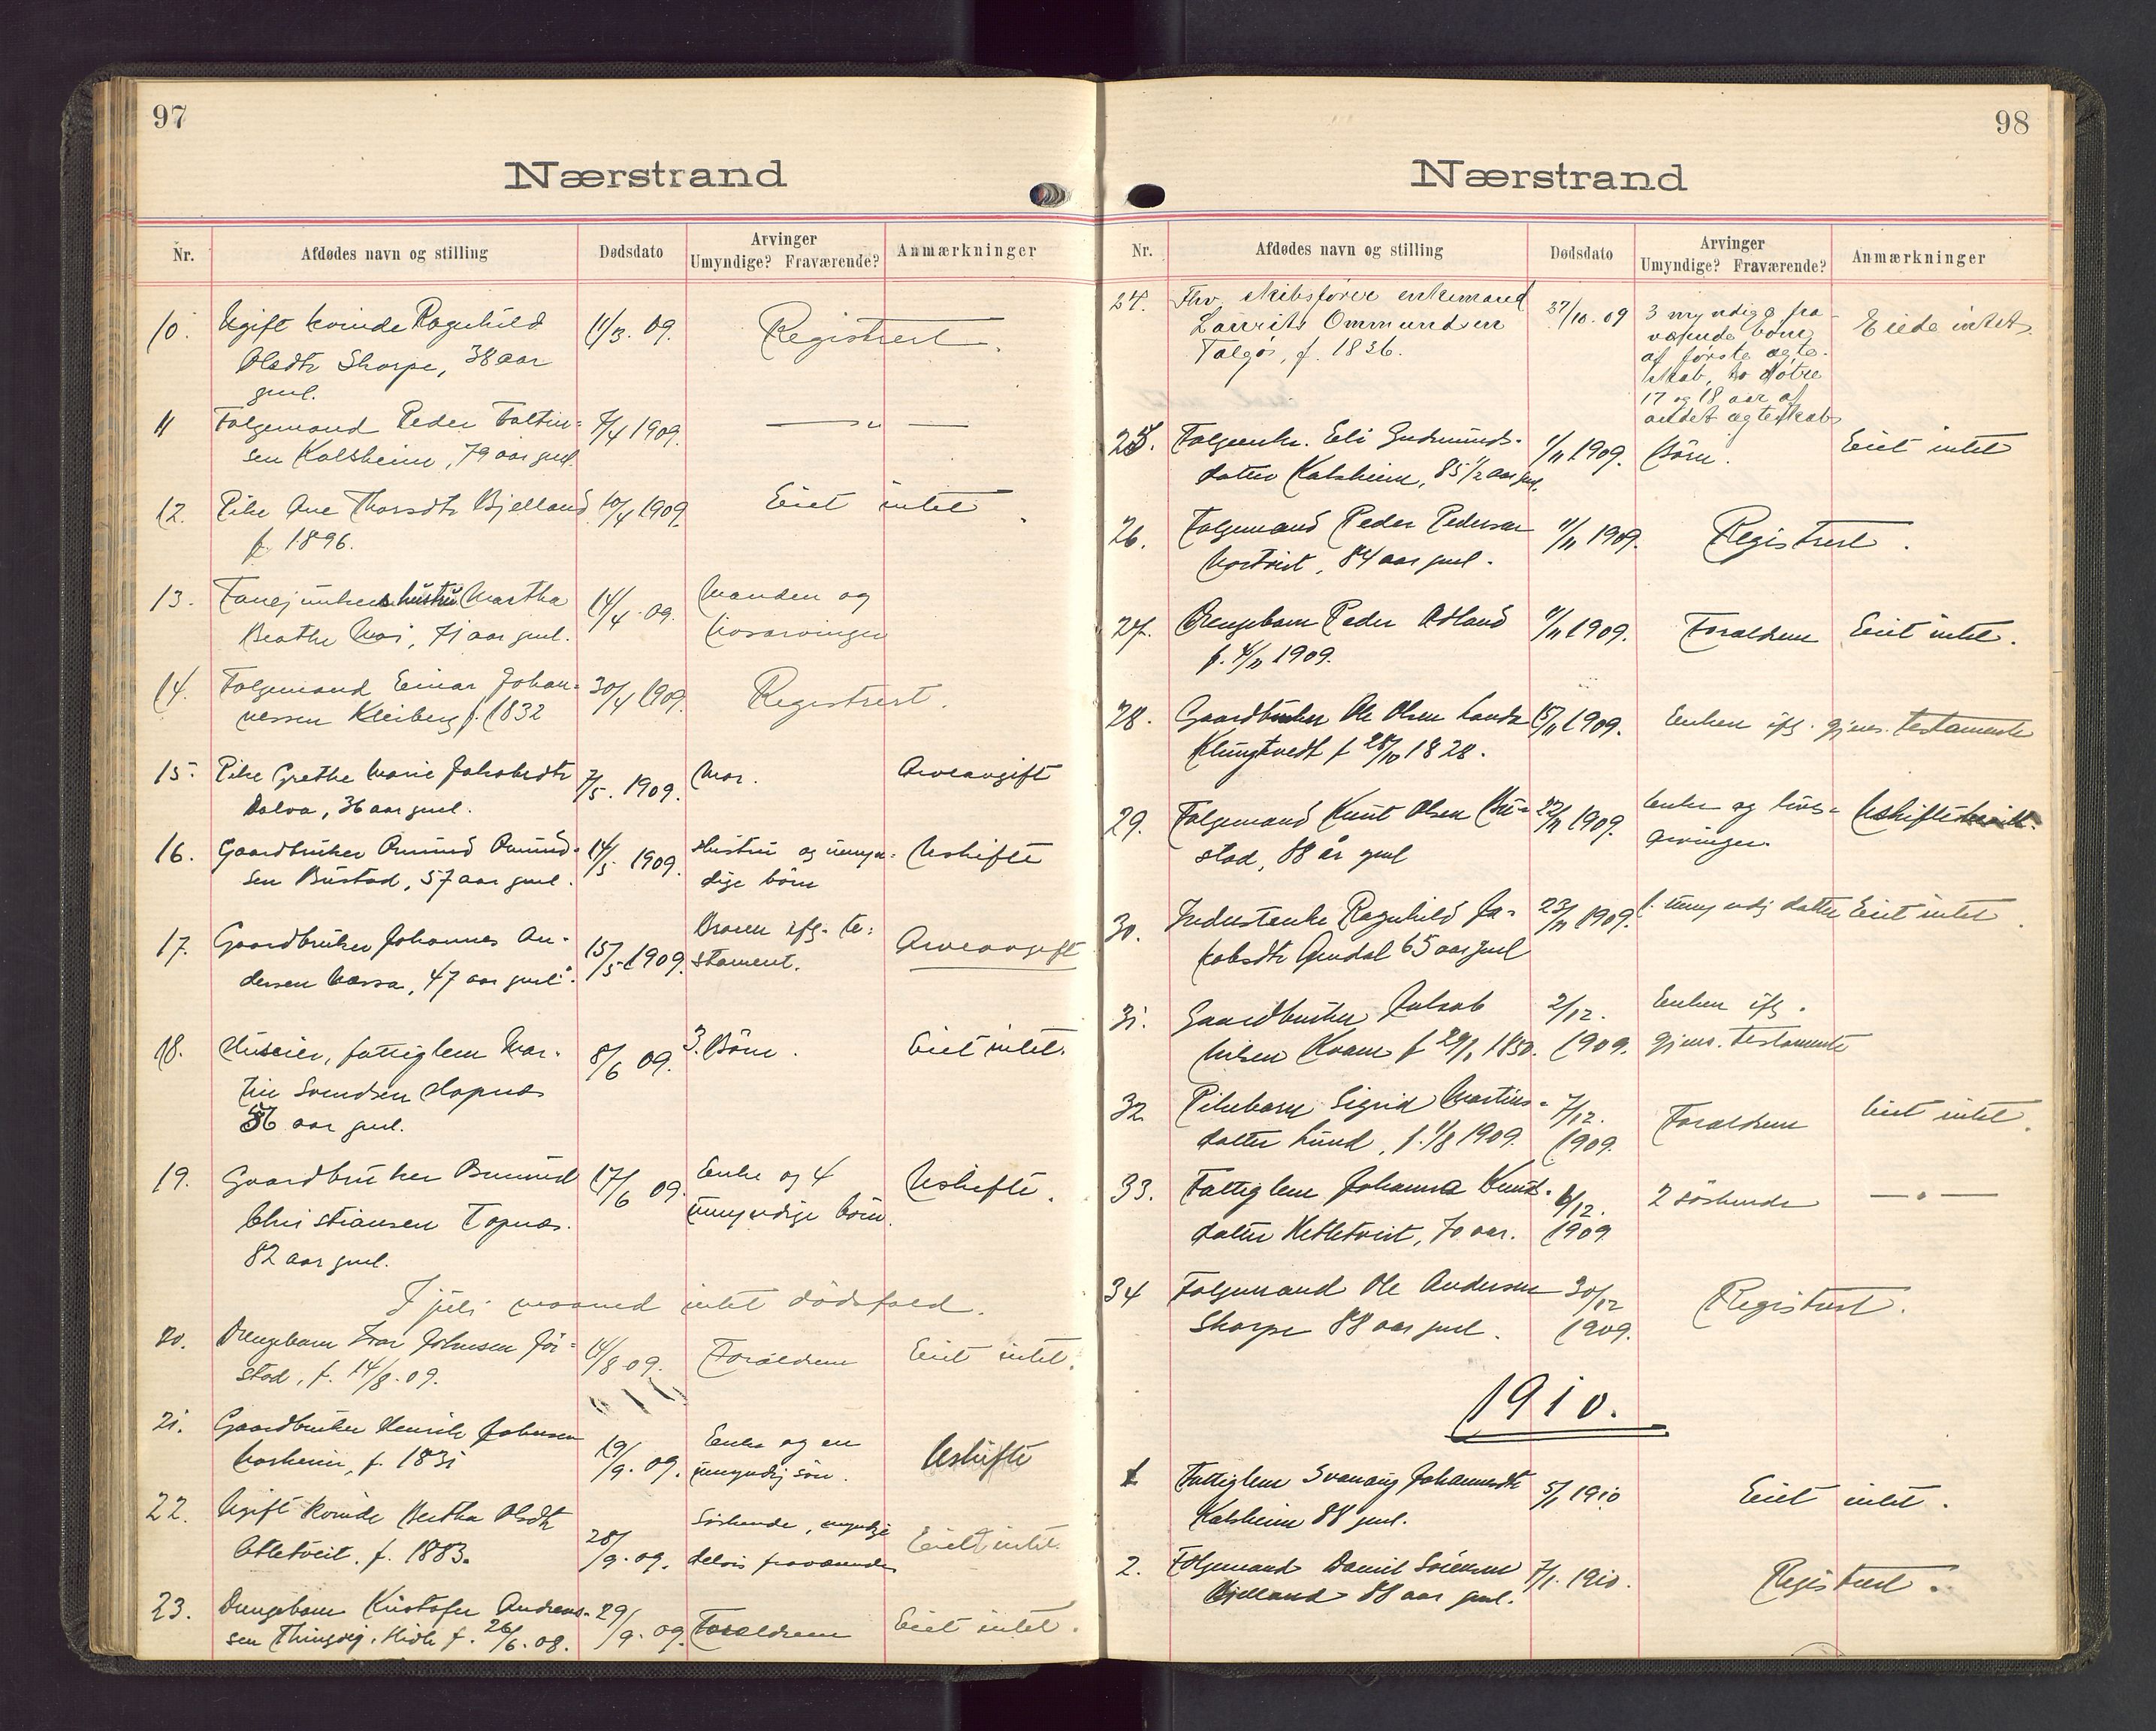 97
Nærstrand
Nr. Afdødes navn og stilling Dødsdato Arvinger Umyndige? Fraværende? Anmærkninger
10. Ugift kvinde Ragnhild 11/3. 09. Registrert.
Olsdtr Skorpe, 38 aar
gml.
11 Folgemand Peder Faltin- 7/4 1909. — " —
sen Kalsheim, 79 aar gml.
12. Pike Ane Thorsdtr Bjelland 10/4 1909. Eiet intet.
f. 1896.
13. hustru Martha 14/4. 09. Manden og
Beathe 71 aar gml. livsarvinger
14. Folgemand Einar Johan- 30/4 1909. Registrert.
nessen Kleiberg f. 1832
15. Pike Grethe Marie Jakobsdtr 7/5. 1909. Mor. Arveavgift
Dalva, 36 aar gml.
16. Gaardbruker Amund Amund- 14/5 1909. Hustru og umyn- Uskifte
sen Bustad, 57 aar gml. dige børn
17. Gaardbruker Johannes An- 15/5 1909. Broren ifg. te- Arveavgift
dersen 47 aar gml. stament.
18. Huseier, fattiglem Mar- 8/6 09. 3. Børn. Eiet intet.
tin Svendsen Hapnes
56 aar gml.
19. Gaardbruker 17/6 09. Enke og 4 Uskifte.
Christiansen Topnes. umyndige børn.
82 aar gml.
I juli maaned intet dødsfald.
20. Drengebarn Ivar Johnsen Jør- 14/8 09. Forældrene Eiet intet.
stad, f. 14/8. 09.
21. Gaardbruker Henrik Johnsen 19/9. 09. Enke og en Uskifte
f. 1831 umyndig søn.
22. Ugift kvinde Bertha Olsdtr 28/9. 09. Søskende, myndige Eiet intet.
f. 1883. delvis fraværende
23. Drengebarn Kristofer Andreas- 29/9. 09. Forældrene Eiet intet.
sen f. 26/6. 08.
98
Nærstrand
Nr. Afdødes navn og stilling Dødsdato Arvinger Umyndige? Fraværende? Anmærkninger
24. Fhv. skibsfører enkemand /10. 09 3 myndige fra- Eiede intet.
Laurits Ommundsen værende børn
Talgø, f. 1836. af første ægte-
skab, to døtre
17 og 18 aar af
andet ægteskab
25. Folgeenke Eli Gudmunds- 1/11 1909. Børn. Eiet intet
datter Kalsheim, 85 1/2 aar gml.
26. Folgemand Peder Pedersen 11/11 1909. Registrert.
84 aar gml.
27. Drengebarn Peder Adland 11/11 1909. Forældrene Eiet intet.
f. 1909.
28. Gaardbruker Ole Olsen Lande 15/11 1909. Enken ifg. gjens. testamente
Klungtvedt f 28/10 1828.
29. Folgemand Knut Olsen Bu- 22/11 1909. Enke og livs- Uskifte
stad, 88 år gml arvinger.
30. Inderstenke Ragnhild Ja- 23/11 1909. 1 umyndig datter Eiet intet.
kobsdtr 65 aar gml
31. Gaardbruker Jakob 2/12. Enken ifg.
Nilsen Kvam f 29/1 1850. 1909. gjens. testamente
32 Pikebarn Sigrid Martins- 7/12. Forældrene Eiet intet.
datter Lund, f. 1/8 1909. 1909.
33. Fattiglem Johanna Knuts- 6/12. 2 søskende — " —
datter 70 aar. 1909
34 Folgemand Ole Andersen 30/12 Registrert.
Skorpe 88 aar gml. 1909.
1910.
1 Fattiglem Svanaug Johannesdtr 5/1 1910 Eiet intet.
Kalsheim 88 gml.
2. Folgemand Daniel 7/1. 1910. Registrert.
Bjelland 88 aar gml.